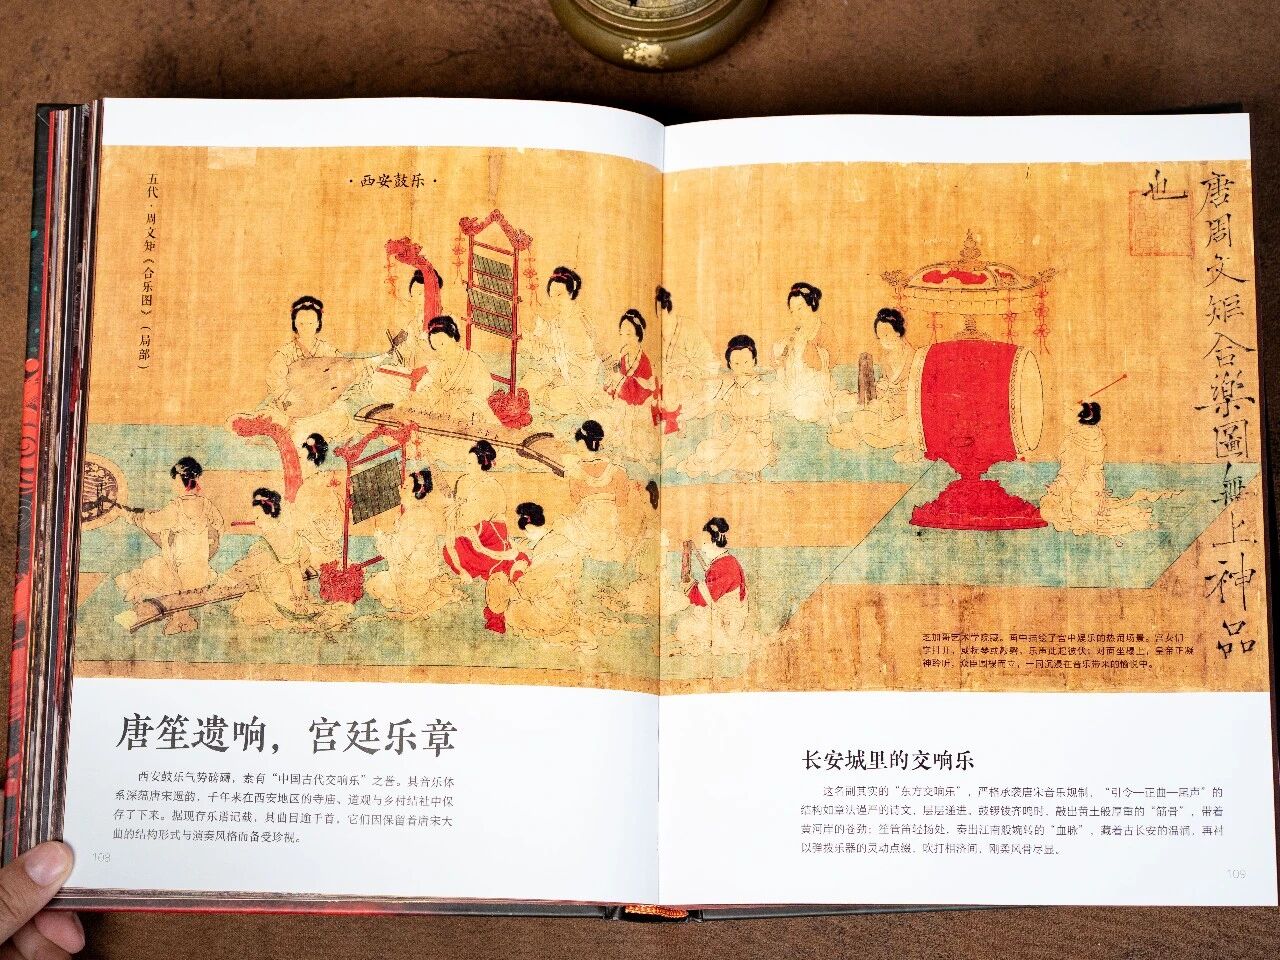 ·西安鼓乐·
五代·周文矩《合乐图》（局部）
唐周文矩合樂圖無上神品
也
芝加哥艺术学院藏。画中描绘了宫中娱乐的热闹场景。宫女们
乐声此起彼伏；对面坐榻上，皇帝正凝
神聆听，众臣围绕而立，一同沉浸在音乐带来的愉悦中。
唐笙遗响，宫廷乐章
西安鼓乐气势磅礴，素有“中国古代交响乐”之誉。其音乐体
系深蕴唐宋遗韵，千年来在西安地区的寺庙、道观与乡村结社中保
存了下来。据现存乐谱记载，其曲目逾千首，它们因保留着唐宋大
曲的结构形式与演奏风格而备受珍视。
108
长安城里的交响乐
这名副其实的“东方交响乐”，严格承袭唐宋音乐规制，“引令—正曲—尾声”的
结构如章法谨严的诗文，层层递进。鼓锣铙齐鸣时，敲出黄土般厚重的“筋骨”，带着
黄河岸的苍劲；笙管笛轻扬处，奏出江南般婉转的“血脉”，藏着古长安的温润，再衬
以弹拨乐器的灵动点缀，吹打相济间，刚柔风骨尽显。
109